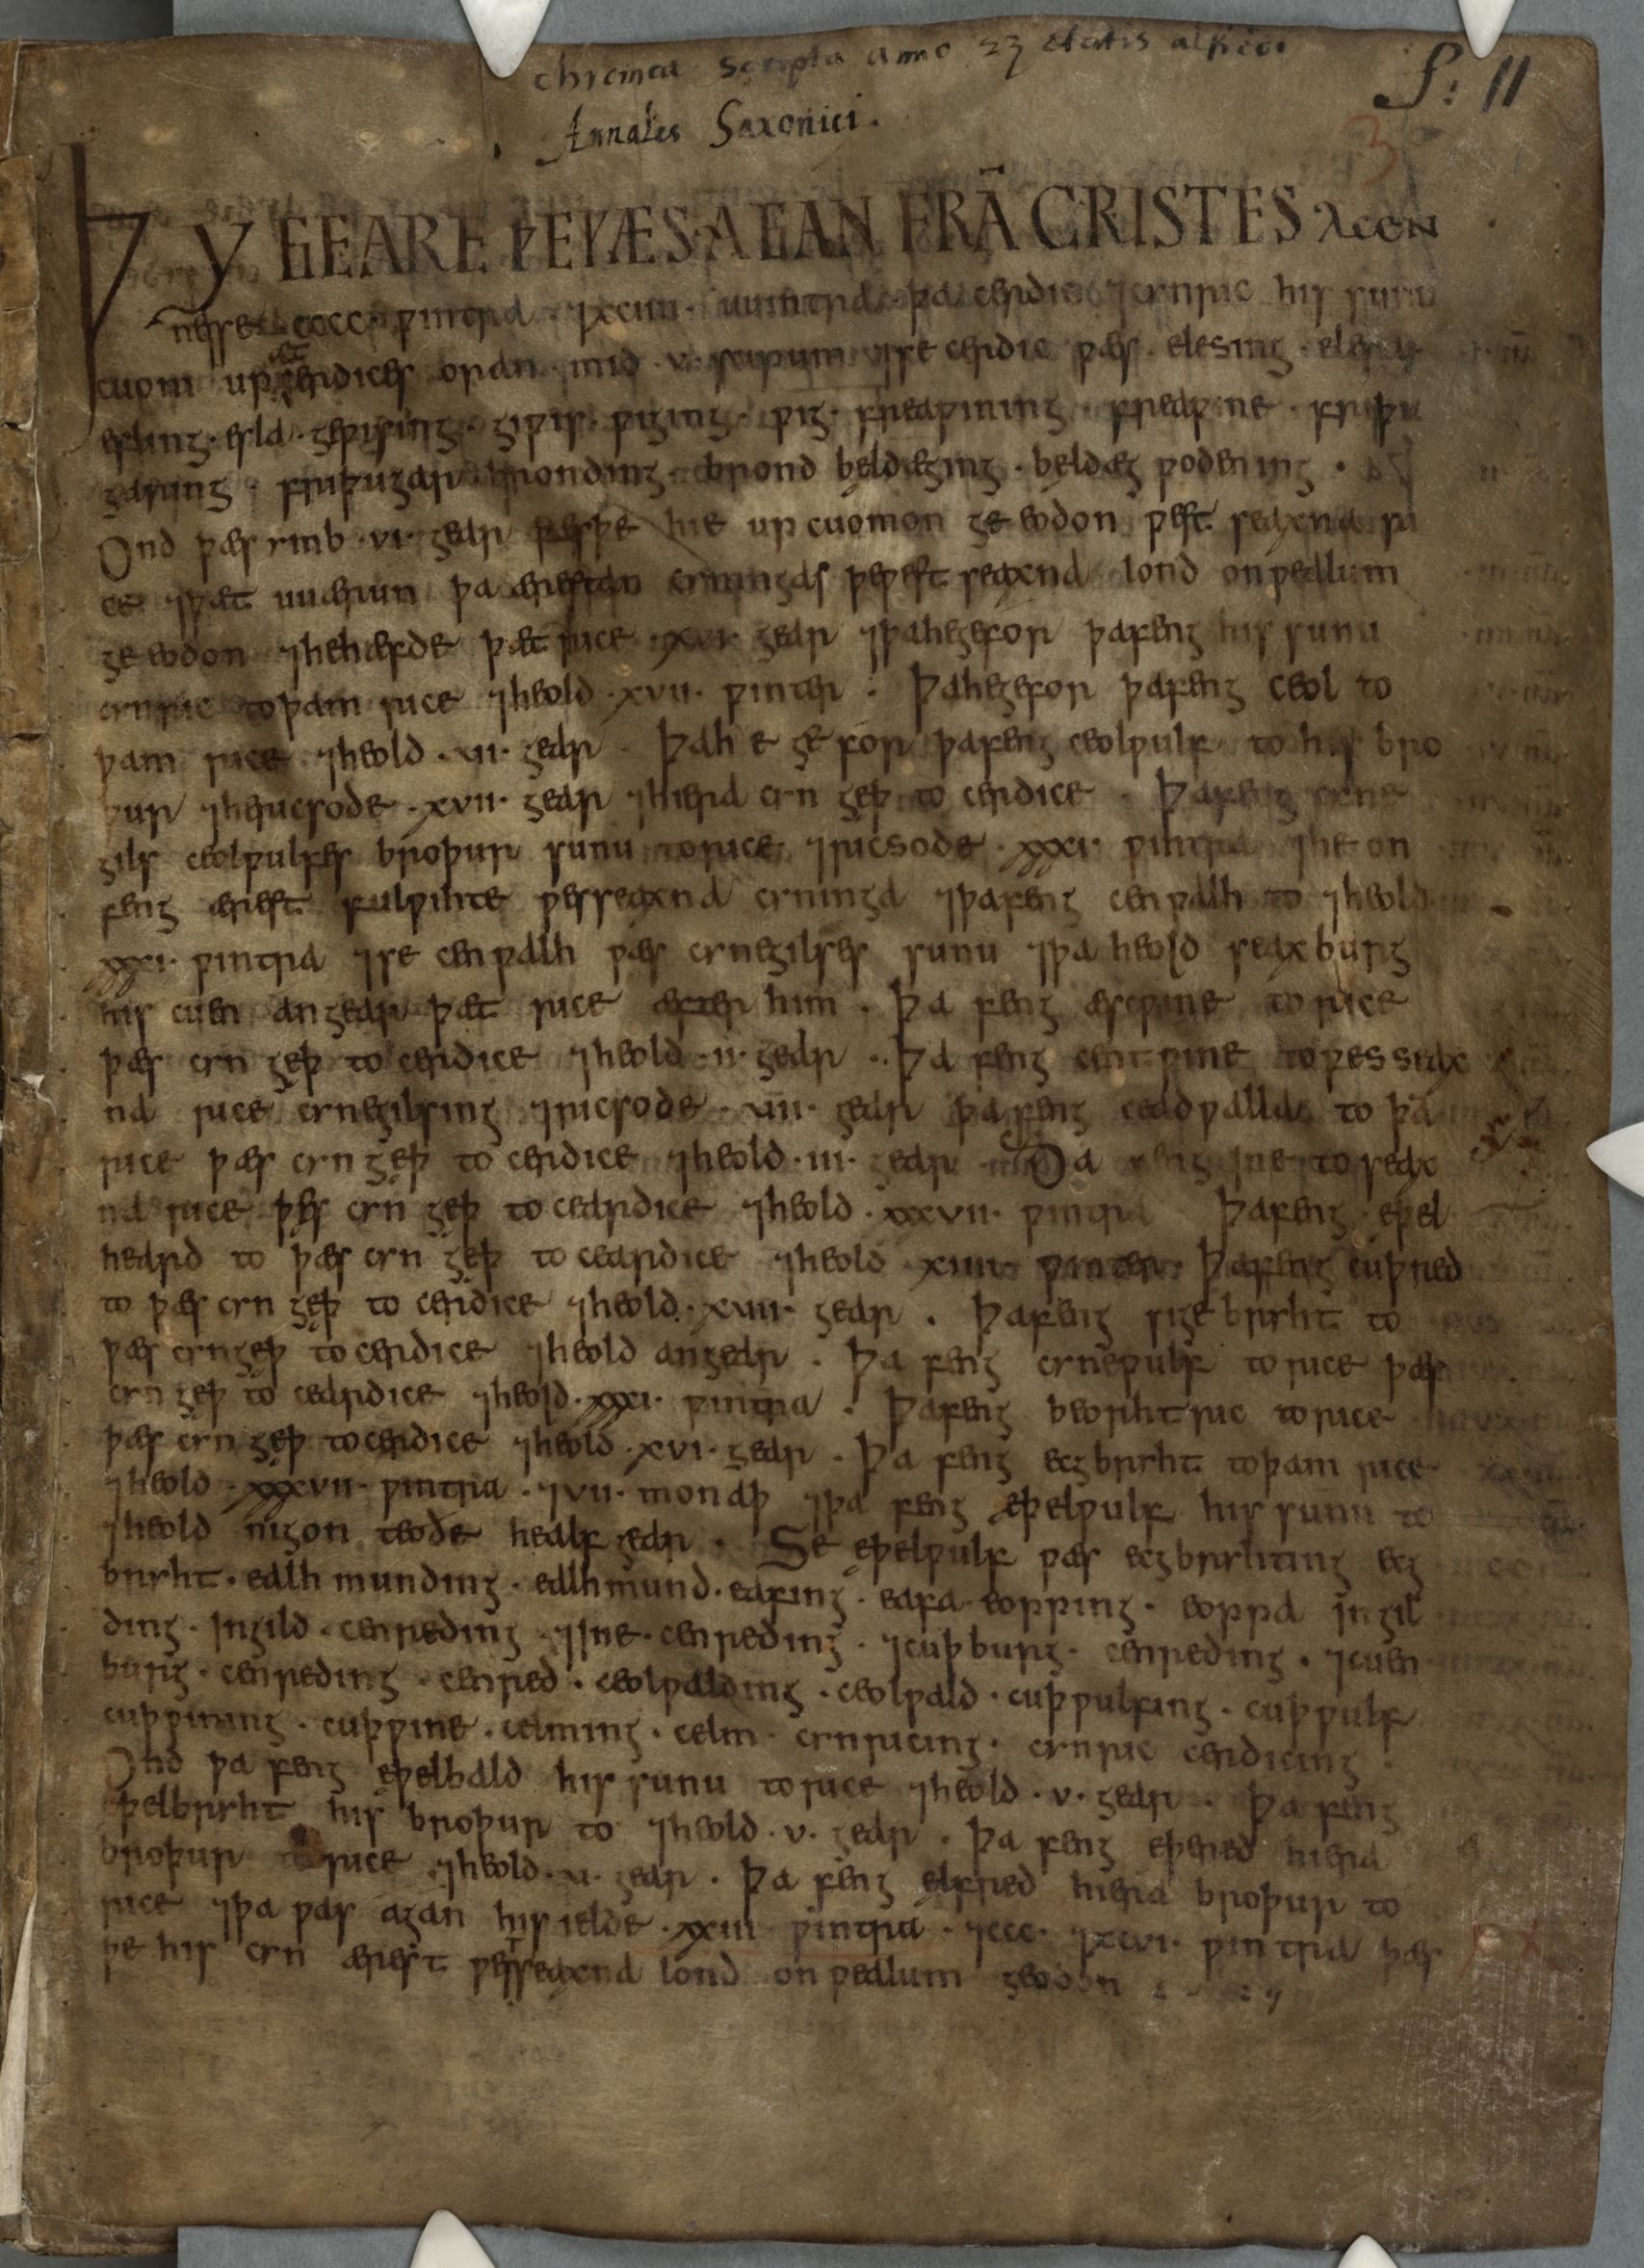 Chronica scripta anno 23 etatis alfredi
Annales Saxonici.
S: 11
3
ÞY GEARE ÞE ǷÆS AGAN FRA̅ CRISTES ACEN
nesse cccc ƿintra ⁊xciiii uuintra þa cerdic ⁊cynric his sunu
cuom up æt cerdices oran mid .v. scipum ⁊se cerdic ƿæs elesing elesa
esling. esla geƿising. giƿis ƿiging. ƿig. freaƿining freaƿine friþu
garing. friþugar bronding. brond bældæging. bældæg ƿodening.
Ond þæs ymb .vi. gear þæs þe hie up cuomon ge eodon ƿest seaxna ri
ce ⁊þæt uuærun þa ærestan cyningas þe ƿest seaxna lond on ƿealum
ge eodon ⁊he hæfde þæt rice .xvi. gear ⁊þa he gefor þa feng his sunu
cynric to þam rice ⁊heold .xvii. ƿinter. Þa he gefor þa feng ceol to
þam rice ⁊heold .vii. gear. Þa he gefor þa feng ceolƿulf to his bro
þur ⁊he ricsode .xvii. gear ⁊hiera cyn gęþ to cerdice. Þa feng cyne
gils ceolƿulfes broþur sunu to rice ⁊ricsode .xxxi. ƿintra ⁊he on
feng ærest fulƿihte ƿesseaxna cyninga ⁊þa feng cenƿalh to ⁊heold
xxxi. ƿintra ⁊se cenƿalh ƿæs cynegilses sunu ⁊þa heold seaxburg
his cuen an gear þæt rice æfter him. Þa feng æscƿine to rice
þæs cyn gęþ to cerdice ⁊heold .ii. gear. Þa feng centƿine to ƿesseax
na rice cynegilsing ⁊ricsode .viiii. gear þa feng ceadƿalla to þa̅
rice þæs cyn gęþ to cerdice ⁊heold .iii. gear. Ða feng ine to seax
na rice þæs cyn gęþ to ceardice ⁊heold .xxxvii. ƿintra Þa feng eþel
heard to þæs cyn gęþ to ceardice ⁊heold xiiii ƿinter. Þa feng cuþred
to þæs cyn gęþ to cerdice ⁊heold .xviii. gear. Þa feng sigebryht to
þæs cyn gęþ to cerdice ⁊heold an gear. Þa feng cyneƿulf to rice þæs
cyn gęþ to ceardice ⁊heold .xxxi. ƿintra. Þa feng beorhtric to rice
þæs cyn gęþ to cerdice ⁊heold .xvi. gear. Þa feng ecgbryht to þam rice
⁊heold .xxxvii. ƿintra. ⁊vii. monaþ ⁊þa feng eþelƿulf his sunu to
⁊heold nigon teoðe healf gear. Se eþelƿulf ƿæs ecgbryhting ecg
bryht. ealhmunding. ealhmund. eafing. eafa eopping. eoppa ingil
ding. Ingild. cenreding ⁊Ine. cenreding. ⁊cuþburg. cenreding. ⁊cuen
burg. cenreding. cenred. ceolƿalding. ceolƿald. cuþƿulfing. cuþƿulf
cuþƿining. cuþƿine. celming. celm. cynricing. cynric cerdicing.
Ond þa feng eþelbald his sunu to rice ⁊heold .v. gear. Þa feng
eþelbryht his broþur to ⁊heold .v. gear. Þa feng eþered hiera
broþur to rice ⁊heold .v. gear. Þa feng elfred hiera broþur to
rice ⁊þa ƿas agan his ielde .xxiii. ƿintra. ⁊ccc. ⁊xcvi. ƿintra þæs
þe his cyn ærest ƿesseaxna lond on ƿealum geodon